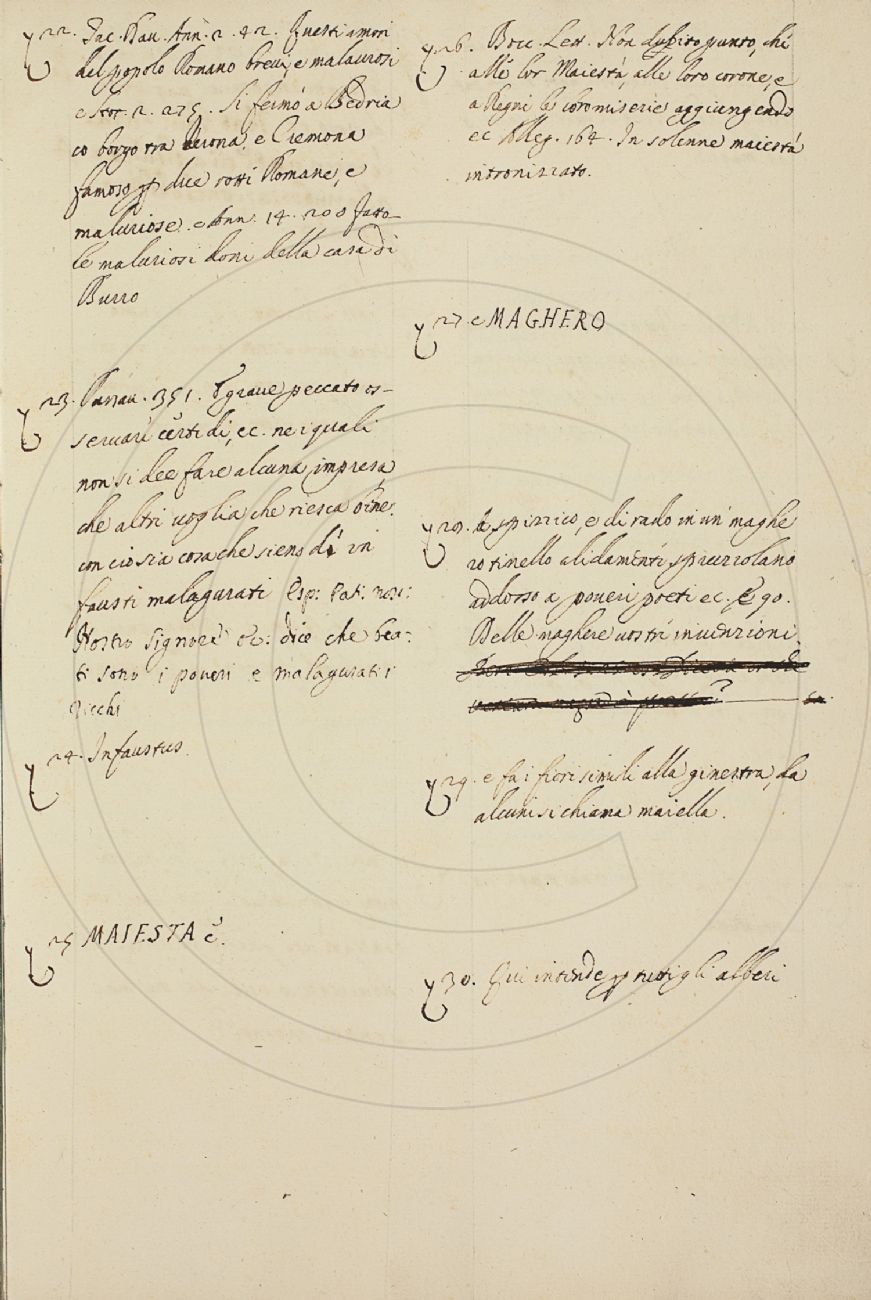 22. Tac. Dav. Ann. 2. 42. Questi amori
del popolo Romano brevi, e malaurosi
e Stor. 2. 275. Si fermò a Bedria
co borgo tra Verona, e Cremona
famoso p due rotti Romane, e
maluriose. e Ann. 14. 200 fatto-
le maluriosi doni della casa di
Burro
23. Passav. 351. È grave peccato os-
servare certi dì, ec. nei quali
non si dee fare alcuna impresa,
che altri voglia che riesca a bene,
con ciò sia cosa che sieno dì in
fausti malagurati Esp: Pat: nos:
Nostro Signore ec: dice che bea-
ti sono i poveri e malagurati i
ricchi
24. Infaustus.
25 MAIESTA è.
26. Bocc. Lett. Non dubito punto, che
alle lor Maestà, alle loro corone, e
a Regni le loro miserie aggiungendo
ec Alleg. 164. In solenne maiestà
intronizzato.
27. e MAGHERO
28. a spizzico, e di rado in un maghe
ro tinello alidamenti spruzzolano
addosso a poveri poeti ec. E 90.
Delle maghere vostre invenzioni.
29. e fa i fiori simili alla ginestra, da
alcuni si chiama maiella.
30. Qui intende p tutti gli alberi